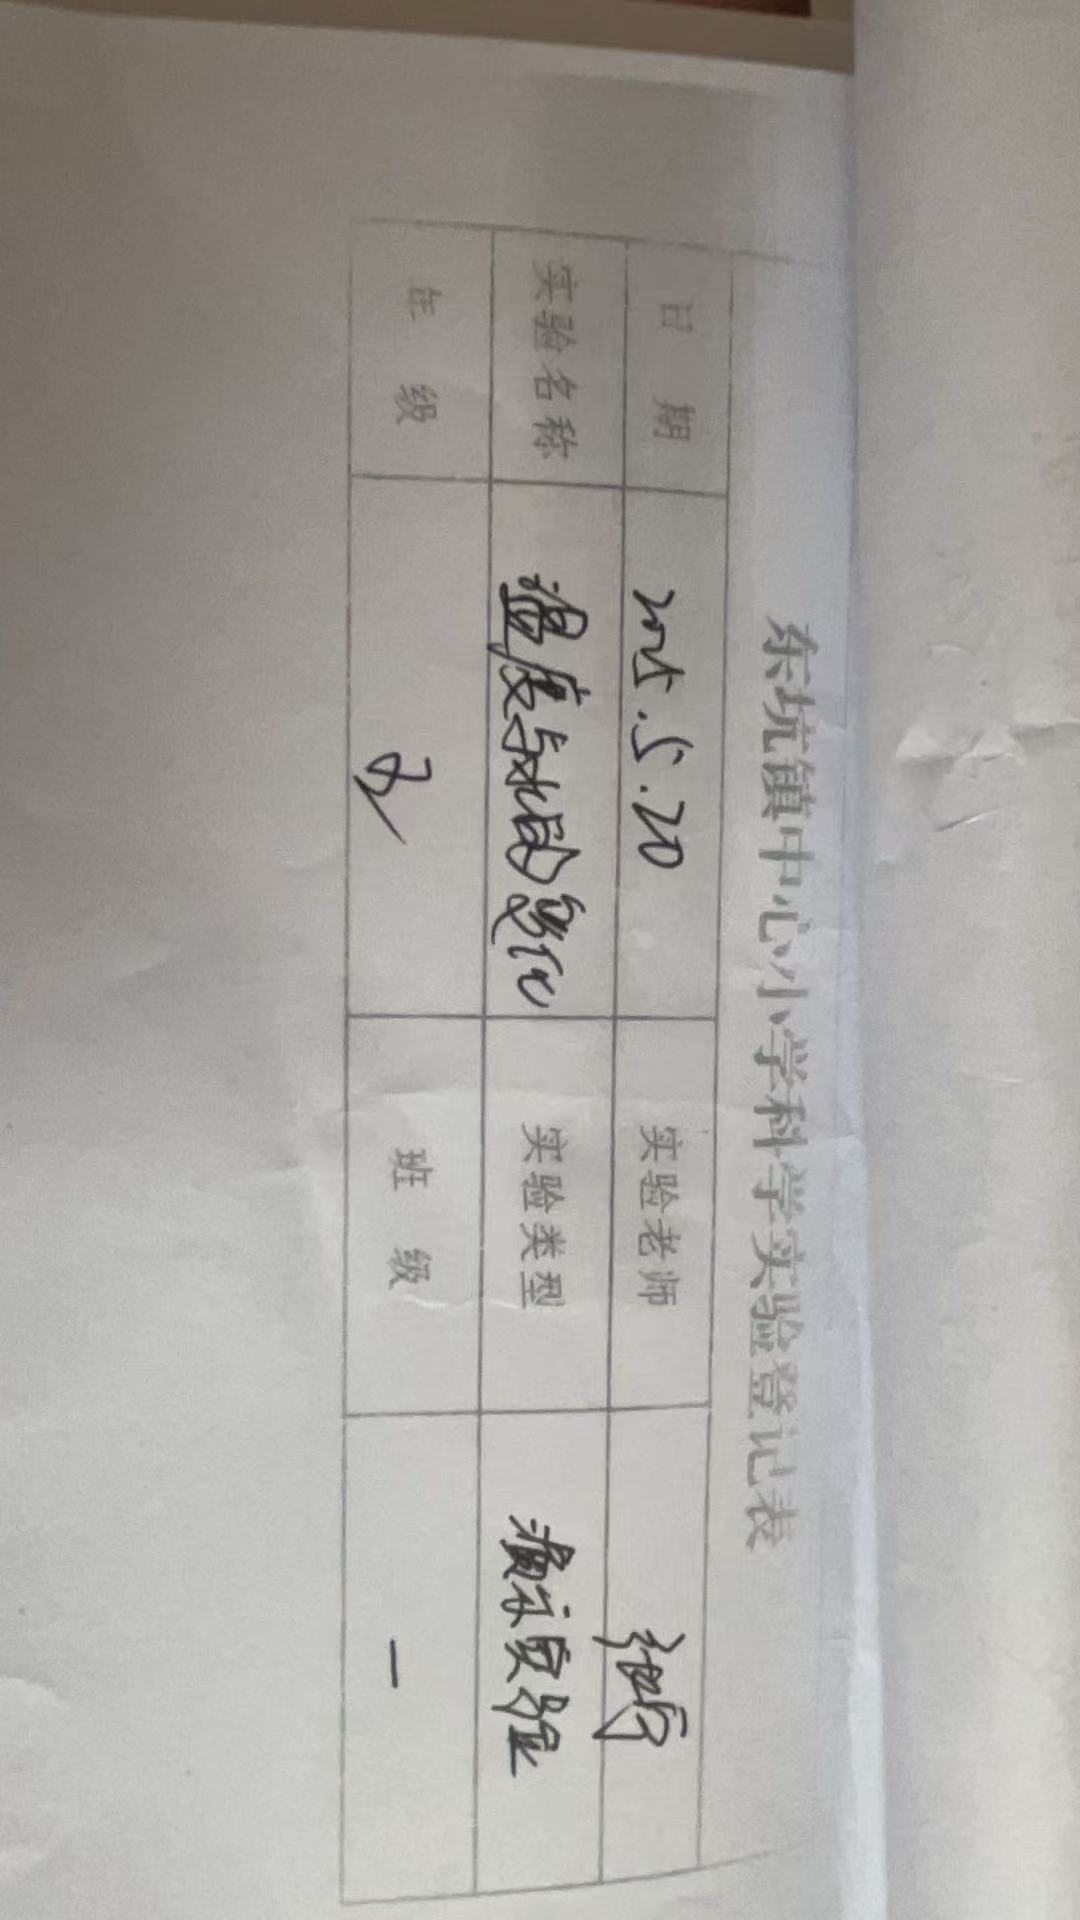 东坑镇中心小学科学实验登记表
日 期 2025.5.20 实验老师
实验名称 温度与水的变化 实验类型 演示实验
年 级 班 级 一